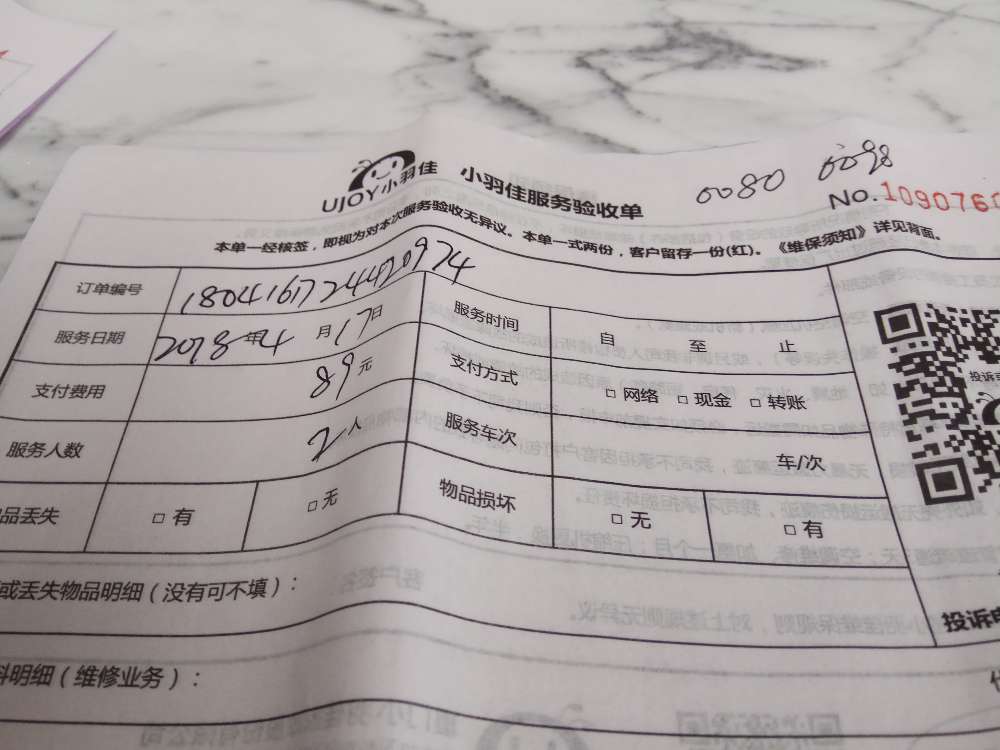 UJOY小羽佳 小羽佳服务验收单 0080 0098
No.1090760
本单一经核签，即视为对本次服务验收无异议。本单一式两份，客户留存一份(红)。《维保须知》详见背面。
订单编号 18041617244920974
服务日期 2018年4月17日 服务时间 自 至 止
支付费用 89元 支付方式 □网络 □现金 □转账
服务人数 2人 服务车次 车/次
品丢失 □有 □无 物品损坏 □无 □有
或丢失物品明细(没有可不填)：
投诉
料明细(维修业务)：